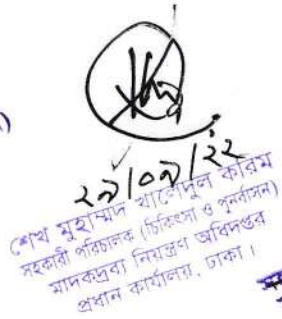 ২৯/০৯/২২
শেখ মুহাম্মদ খালেদুল করিম
সহকারী পরিচালক (চিকিৎসা ও পুনর্বাসন)
মাদকদ্রব্য নিয়ন্ত্রণ অধিদপ্তর
প্রধান কার্যালয়, ঢাকা।